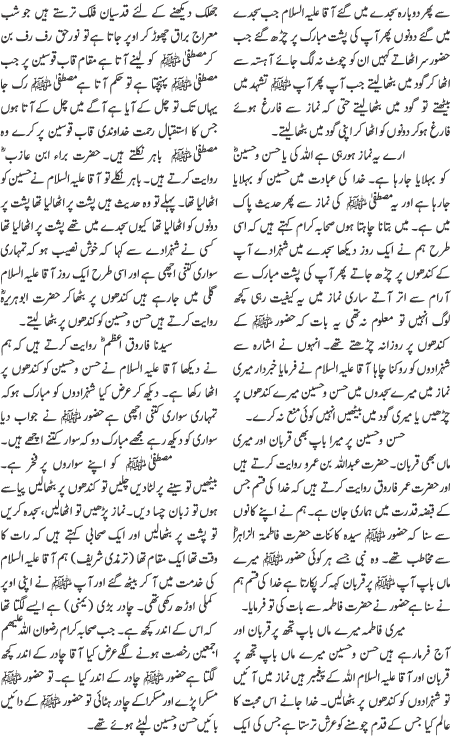 سے پھر دوبارہ سجدے میں گئے آقا علیہ السلام جب سجدے
میں گئے دونوں پھر آپ کی پشت مبارک پر چڑھ گئے جب
حضور سر اٹھاتے کہیں ان کو چوٹ نہ لگ جائے آہستہ سے
اٹھا کر گود میں بٹھا لیتے جب آپ پھر آپ ﷺ تشہد میں
بیٹھتے تو گود میں بٹھا لیتے حتی کہ نماز سے فارغ ہوئے
فارغ ہوکر دونوں کو اٹھا کر اپنی گود میں بٹھا لیتے۔
ارے یہ نماز ہورہی ہے اللہ کی یا حسن و حسینؓ
کو بہلایا جارہا ہے۔ خدا کی عبادت میں حسین کو بہلایا
جارہا ہے اور یہ مصطفیٰ ﷺ کی نماز سے پھر حدیث پاک
میں ہے۔ میں بتانا چاہتا ہوں صحابہ کرام کہتے ہیں کہ اسی
طرح ہم نے ایک روز دیکھا سجدے میں شہزادے آپ
کے کندھوں پر چڑھ جاتے پھر آپ کی پشت مبارک سے
آرام سے اتر آتے ساری نماز میں یہ کیفیت رہی کچھ
لوگ انہیں تو معلوم نہ تھی یہ بات کہ حضور ﷺ کے
کندھوں پر روزانہ چڑھتے تھے۔ انہوں نے اشارہ سے
شہزادوں کو روکنا چاہا آقا علیہ السلام نے فرمایا خبردار میری
نماز میں میرے سجدوں میں حسن و حسین میرے کندھوں پر
چڑھیں یا میری گود میں بیٹھیں انہیں کوئی منع نہ کرے۔
حسن و حسین پر میرا باپ بھی قربان اور میری
ماں بھی قربان۔ حضرت عبداللہ بن عمرو روایت کرتے ہیں
اور حضرت عمر فاروق روایت کرتے ہیں کہ خدا کی قسم جس
کے قبضہ قدرت میں ہماری جان ہے۔ ہم نے اپنے کانوں
سے سنا کہ حضور ﷺ سیدہ کائنات حضرت فاطمۃ الزاہراؓ
سے مخاطب تھے۔ وہ نبی جسے ہر کوئی حضور ﷺ میرے
ماں باپ آپ ﷺ پر قربان کہہ کر پکارتا ہے خدا کی قسم ہم
نے سنا ہے حضور نے حضرت فاطمہ سے بات کی تو فرمایا۔
میری فاطمہ میرے ماں باپ تجھ پر قربان اور
آج فرمارہے ہیں حسن و حسین میرے ماں باپ تجھ پر
قربان اور آقا علیہ السلام اللہ کے پیغمبر ہیں نماز میں آئیں
تو شہزادوں کو کندھوں پر بٹھالیں۔ خدا جانے اس محبت کا
عالم کیا جس کے قدم چومنے کو عرش ترستا ہے جس کی ایک
جھلک دیکھنے کے لئے قدسیان فلک ترستے ہیں جو شب
معراج براق چھوڑ کر اوپر جاتا ہے تو نور حق رف رف بن
کر مصطفیٰ ﷺ کو لینے آتا ہے مقام قاب قوسین پر جب
مصطفیٰ ﷺ پہنچتا ہے تو حکم آتا ہے مصطفیٰ ﷺ رک جا
یہاں تک تو چل کے آیا ہے آگے میں چل کے آتا ہوں
جس کا استقبال رحمت خداوندی قاب قوسین پر کرے وہ
مصطفیٰ ﷺ باہر نکلتے ہیں۔ حضرت براء ابن عازبؓ
روایت کرتے ہیں۔ باہر نکلے تو آقا علیہ السلام نے حسین کو
اٹھالیا تھا۔ پہلے تو وہ حدیث ہیں پشت پر اٹھالیا کندھوں پر
دونوں کو اٹھالیا تھا کیوں سجدے میں تھے پشت پر اٹھالیا تھا
کسی نے شہزادے سے کہا کہ خوش نصیب ہو کہ تمہاری
سواری کتنی اچھی ہے اور اسی طرح ایک روز آقا علیہ السلام
گلی میں جارہے ہیں کندھوں پر بٹھا کر حضرت ابوہریرہؓ
روایت کرتے ہیں حسن و حسین کو کندھوں پر بٹھا لیتے۔
سیدنا فاروق اعظمؓ روایت کرتے ہیں کہ ہم
نے دیکھا آقا علیہ السلام نے حسن و حسین کو کندھوں پر
اٹھا رکھا ہے۔ دیکھ کر عرض کیا شہزادوں کو مبارک ہو کہ
تمہاری سواری کتنی اچھی ہے حضور ﷺ نے جواب دیا
سواری کو دیکھ رہے مجھے مبارک دو کہ سوار کتنے اچھے ہیں۔
مصطفیٰ ﷺ کو اپنے سواروں پر فخر ہے۔
بیٹھیں تو سینے پر لٹا دیں چلیں تو کندھوں پر بٹھالیں پیاسے
ہوں تو زبان چسا دیں۔ نماز پڑھیں تو بٹھا لیں، سجدہ کریں
تو پشت پر بٹھالیں اور ایک صحابی کہتے ہیں کہ رات کا
وقت تھا ایک مقام تھا (ترمذی شریف) ہم آقا علیہ السلام
کی خدمت میں آکر بیٹھ گئے اور آپ ﷺ نے اپنی اوپر
کملی اوڑھ رکھی تھی۔ چادر بڑی (یمنی) ہے ایسے لگتا تھا
کہ اس کے اندر کچھ ہے۔ جب صحابہ کرام رضوان اللہ علیھم
اجمعین رخصت ہونے لگے عرض کیا آقا چادر کے اندر کچھ
لگتا ہے حضور ﷺ چادر کے اندر کیا ہے۔ تو حضور ﷺ
مسکرا پڑے اور مسکرا کے چادر ہٹائی تو حضور ﷺ کے دائیں
بائیں حسن و حسین لپٹے ہوئے تھے۔